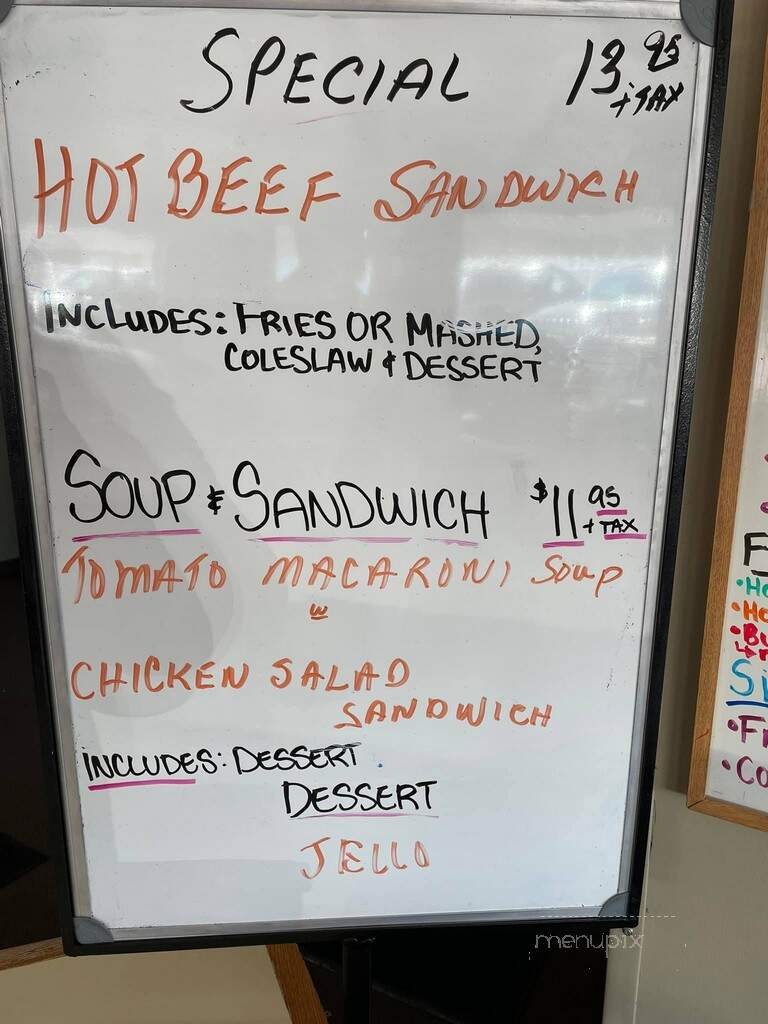 SPECIAL 13.95 + TAX
HOT BEEF SANDWICH
INCLUDES: FRIES OR MASHED,
COLESLAW & DESSERT
SOUP & SANDWICH $11.95 + TAX
TOMATO MACARONI SOUP
w
CHICKEN SALAD
SANDWICH
INCLUDES: DESSERT.
DESSERT
JELLO
menupix